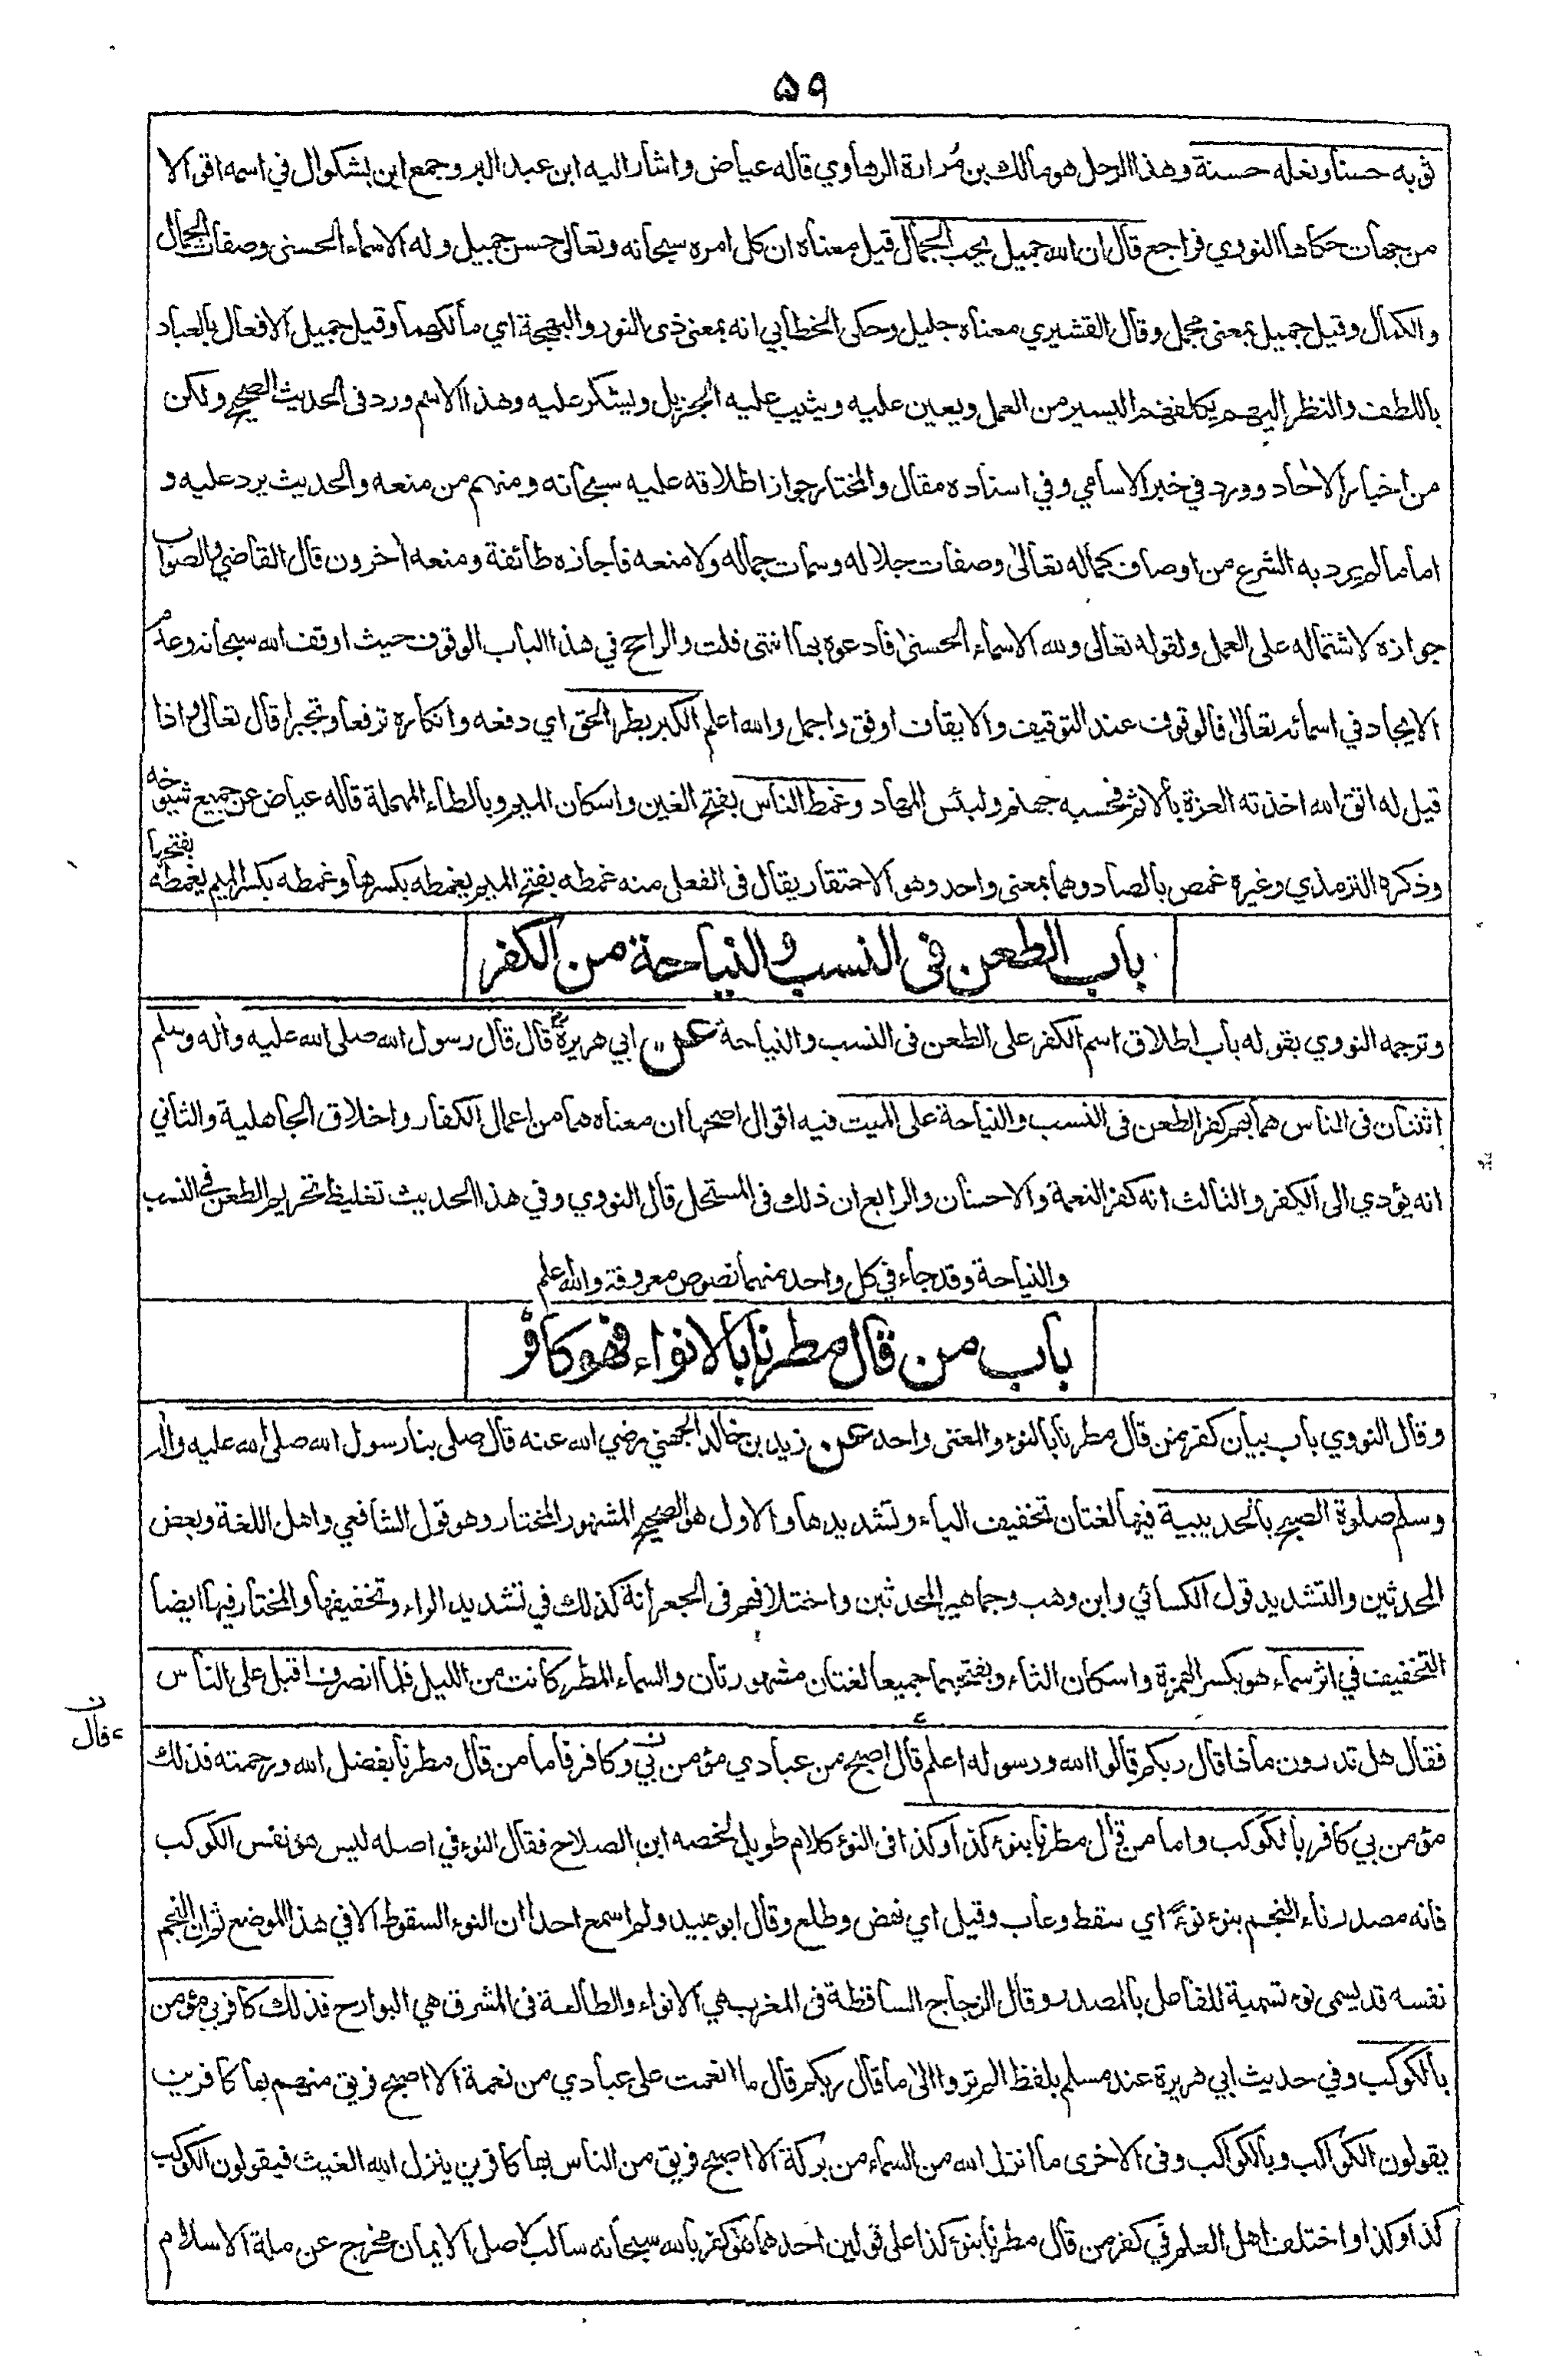 ٥٩
ثوبه حسنا ونعله حسنة وهذا الرجل هو مالك بن مُرارة الرهاوي قاله عياض واشار اليه ابن عبد البر وجمع ابن بشكوال في اسمه اقوالا
من جهات حكاها النووي فراجع قال ان الله جميل يحب الجمال قيل معناه ان كل امره سبحانه وتعالى حسن جميل وله الاسماء الحسنى وصفات الجمال
والكمال وقيل جميل بمعنى مجمل وقال القشيري معناه جليل وحكى الخطابي انه بمعنى ذى النور والبهجة اي مالكهما وقيل جميل الافعال بالعباد
باللطف والنظر اليهم يكلفهم اليسير من العمل ويعين عليه ويثيب عليه الجزيل ويشكر عليه وهذا الاسم ورد فى الحديث الصحيح ولكن
من اخبار الاحاد وورد في خبر الاسامي وفي اسناده مقال والمختار جواز اطلاقه عليه سبحانه ومنهم من منعه والحديث يرد عليه و
اما ما لم يرد به الشرع من اوصاف كماله تعالى وصفات جلاله وسمات جماله ولا منعه فاجازه طائفة ومنعه اخرون قال القاضي والصواب
جوازه لاشتماله على العمل ولقوله تعالى ولله الاسماء الحسنى فادعوه بها انتهى قلت والراجح في هذا الباب الوقوف حيث اوقف الله سبحانه وعدم
الايجاد في اسمائه تعالى فالوقوف عند التوقيف والايقاف اوفق واجمل والله اعلم الكبر بطر الحق اي دفعه وانكاره ترفعا وتجبرا قال تعالى واذا
قيل له اتق الله اخذته العزة بالاثم فحسبه جهنم ولبئس المهاد وغمط الناس بفتح الغين واسكان الميم وبالطاء المهملة قاله عياض عن جميع شيوخه
وذكره الترمذي وغيره غمص بالصاد وهما بمعنى واحد وهو الاحتقار يقال فى الفعل منه غمطه بفتح الميم يغمطه بكسرها وغمطه بكسر الميم يغمطه بفتحها
باب الطعن فى النسب والنياحة من الكفر
وترجمه النووي بقوله باب اطلاق اسم الكفر على الطعن فى النسب والنياحة عن ابي هريرة قال قال رسول الله صلى الله عليه واله وسلم
اثنتان فى الناس هما بهم كفر الطعن فى النسب والنياحة على الميت فيه اقوال اصحها ان معناه هما من اعمال الكفار واخلاق الجاهلية والثاني
انه يؤدي الى الكفر والثالث انه كفر النعمة والاحسان والرابع ان ذلك فى المستحل قال النووي وفي هذا الحديث تغليظ تحريم الطعن في النسب
والنياحة وقد جاء في كل واحد منهما نصوص معروفة والله اعلم
باب من قال مطرنا بالانواء فهو كافر
وقال النووي باب بيان كفر من قال مطرنا بالنوء والمعنى واحد عن زيد بن خالد الجهني رضي الله عنه قال صلى بنا رسول الله صلى الله عليه واله
وسلم صلوة الصبح بالحديبية فيها لغتان تخفيف الياء وتشديدها والاول هو الصحيح المشهور المختار وهو قول الشافعي واهل اللغة وبعض
المحدثين والتشديد قول الكسائي وابن وهب وجماهير المحدثين واختلافهم فى الجعرانة كذلك في تشديد الراء وتخفيفها والمختار فيها ايضا
التخفيف في اثر سماء هو بكسر الهمزة واسكان الثاء وبفتحهما جميعا لغتان مشهورتان والسماء المطر كانت من الليل فلما انصرف اقبل على الناس
فقال هل تدرون ماذا قال ربكم قالوا الله ورسوله اعلم قال اصبح من عبادي مؤمن بي وكافر فاما من قال مطرنا بفضل الله ورحمته فذلك
ن قال
مؤمن بي كافر بالكوكب واما من قال مطرنا بنوء كذا وكذا فى النوء كلام طويل لخصه ابن الصلاح فقال النوء في اصله ليس هو نفس الكوكب
فانه مصدر ناء النجم ينوء نوءً اي سقط وغاب وقيل اي نهض وطلع وقال ابو عبيد ولم اسمع احدا ان النوء السقوط الا في هذا الموضع ثم ان النجم
نفسه قد يسمى نوء تسمية للفاعل بالمصدر وقال الزجاج الساقطة فى المغرب هي الانواء والطالعة فى المشرق هي البوارح فذلك كافر بي مؤمن
بالكوكب وفي حديث ابي هريرة عند مسلم بلفظ الم تروا الى ما قال ربكم قال ما انعمت على عبادي من نعمة الا اصبح فريق منهم بها كافرين
يقولون الكواكب وبالكواكب وفى الاخرى ما انزل الله من السماء من بركة الا اصبح فريق من الناس بها كافرين ينزل الله الغيث فيقولون الكوكب
كذا وكذا واختلف اهل العلم في كفر من قال مطرنا بنوء كذا على قولين احدهما هو كفر بالله سبحانه سالب لاصل الايمان مخرج عن ملة الاسلام